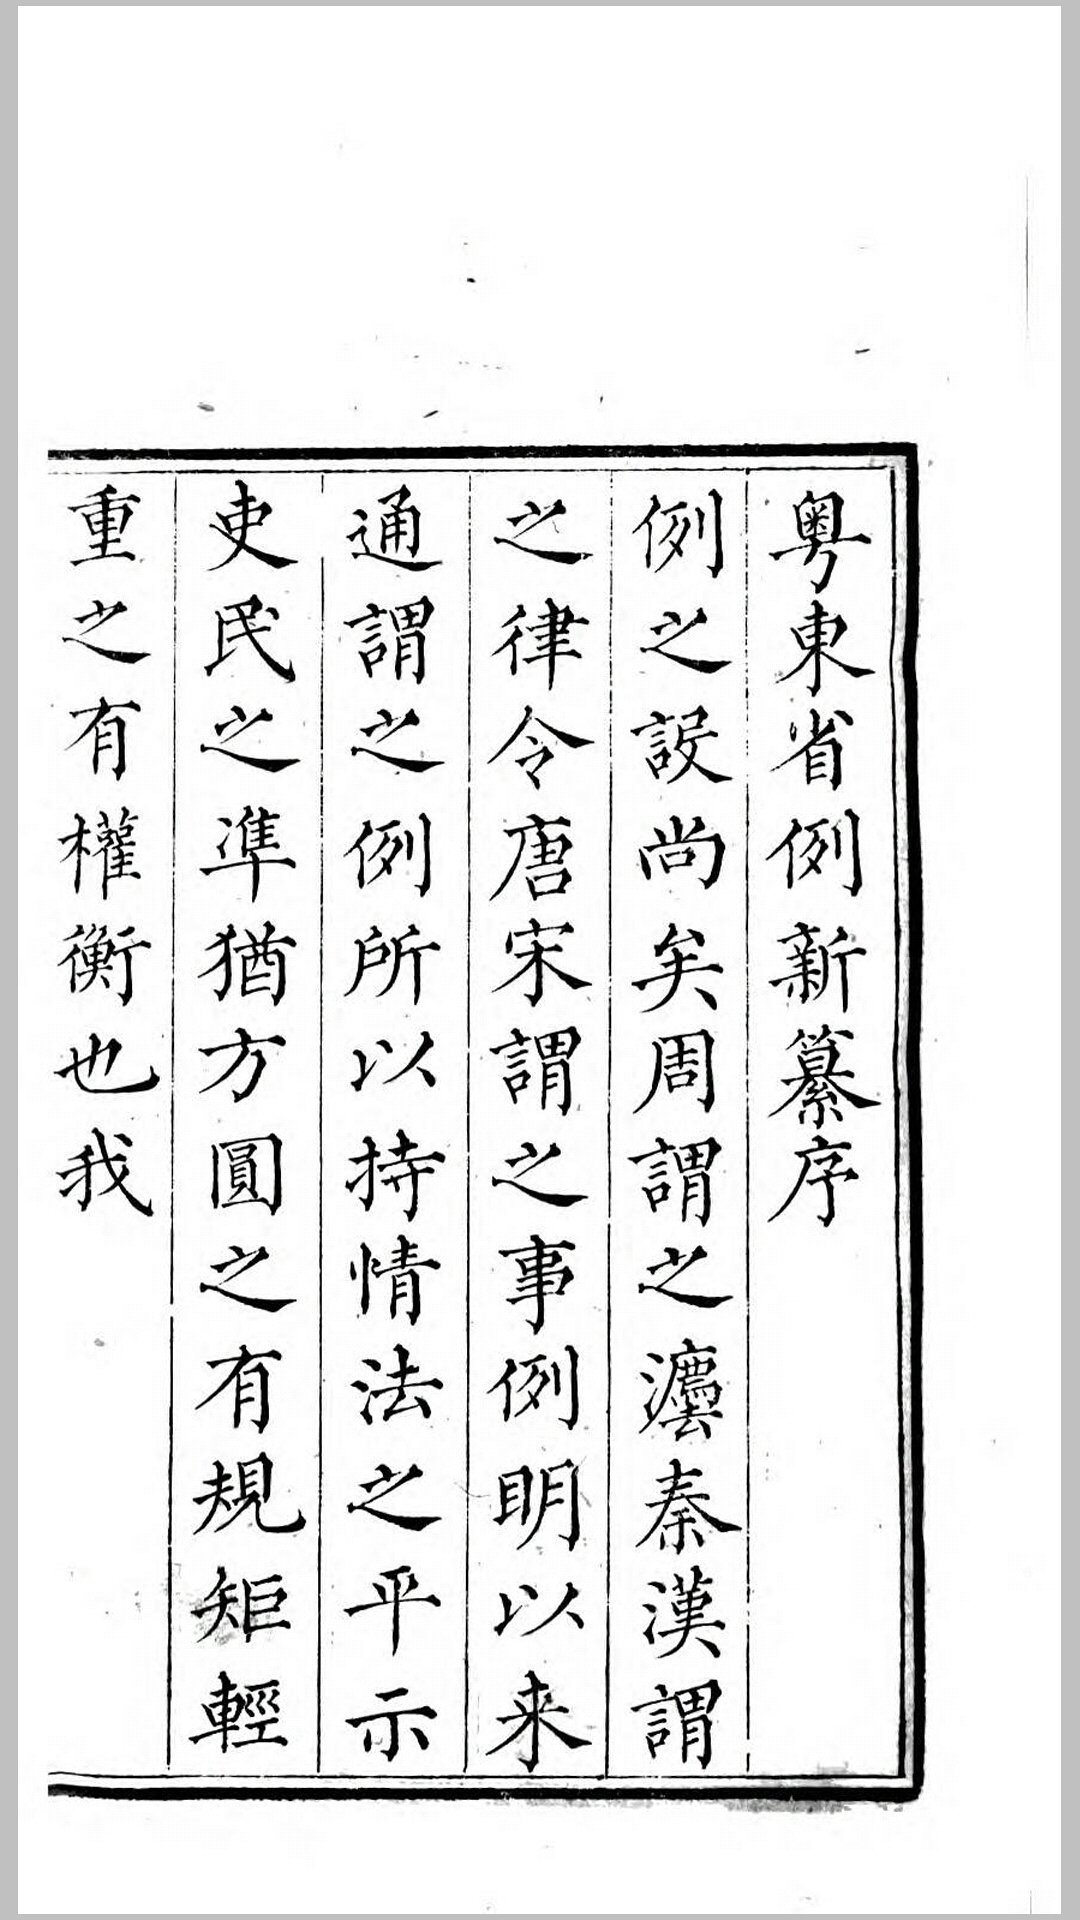 粵東省例新纂序
例之設尚矣周謂之灋秦漢謂
之律令唐宋謂之事例明以来
通謂之例所以持情法之平示
吏民之準猶方圓之有規矩輕
重之有權衡也我